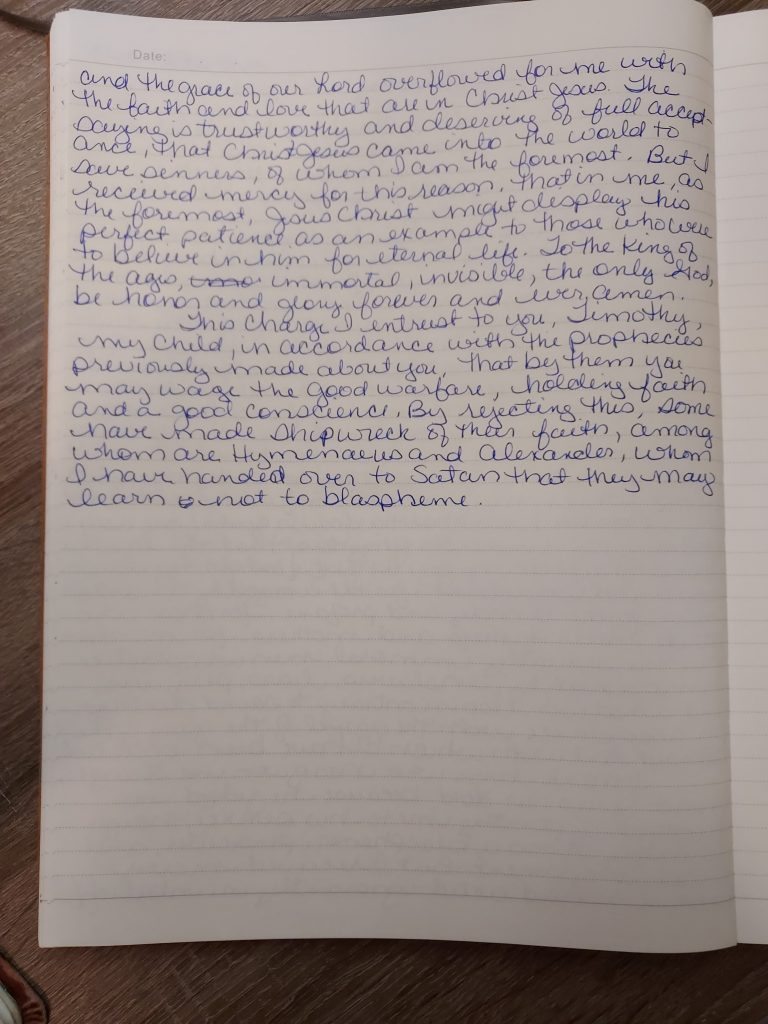 Date:
and the grace of our Lord overflowed for me with
the faith and love that are in Christ Jesus. The
saying is trustworthy and deserving of full accept-
ance, that Christ Jesus came into the world to
save senners, of whom I am the foremost. But I
received mercy for this reason, that in me, as
the foremost, Jesus Christ might display his
perfect patience as an example to those who were
to believe in him for eternal life. To the King of
the ages, immortal, invisible, the only God,
be honor and glory forever and ever, amen.
This charge I entrust to you, Timothy,
my child, in accordance with the prophecies
previously made about you, that by them you
may wage the good warfare, holding faith
and a good conscience. By rejecting this, some
have made shipwreck of their faith, among
whom are Hymenaeus and Alexander, whom
I have handed over to Satan that they may
learn not to blaspheme.